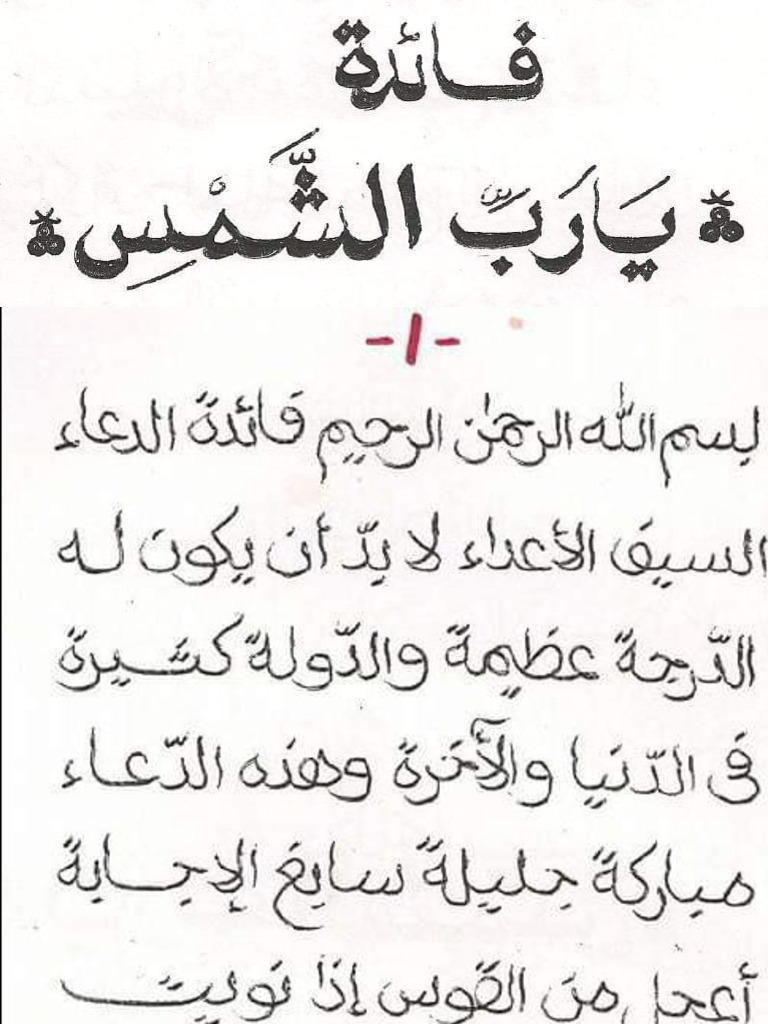 فائدة
يَارَبِّ الشَّمْسِ
-١-
بسم اللّه الرحمٰن الرحيم فائدة الدعاء
السيف الأعداء لا بدّ أن يكون له
الدّرجة عظيمة والدّولة كثيرة
فى الدّنيا والأٓخرة وهذه الدّعاء
مباركة جليلة سابغ الإجابة
أعجل من القوس إذا نويت